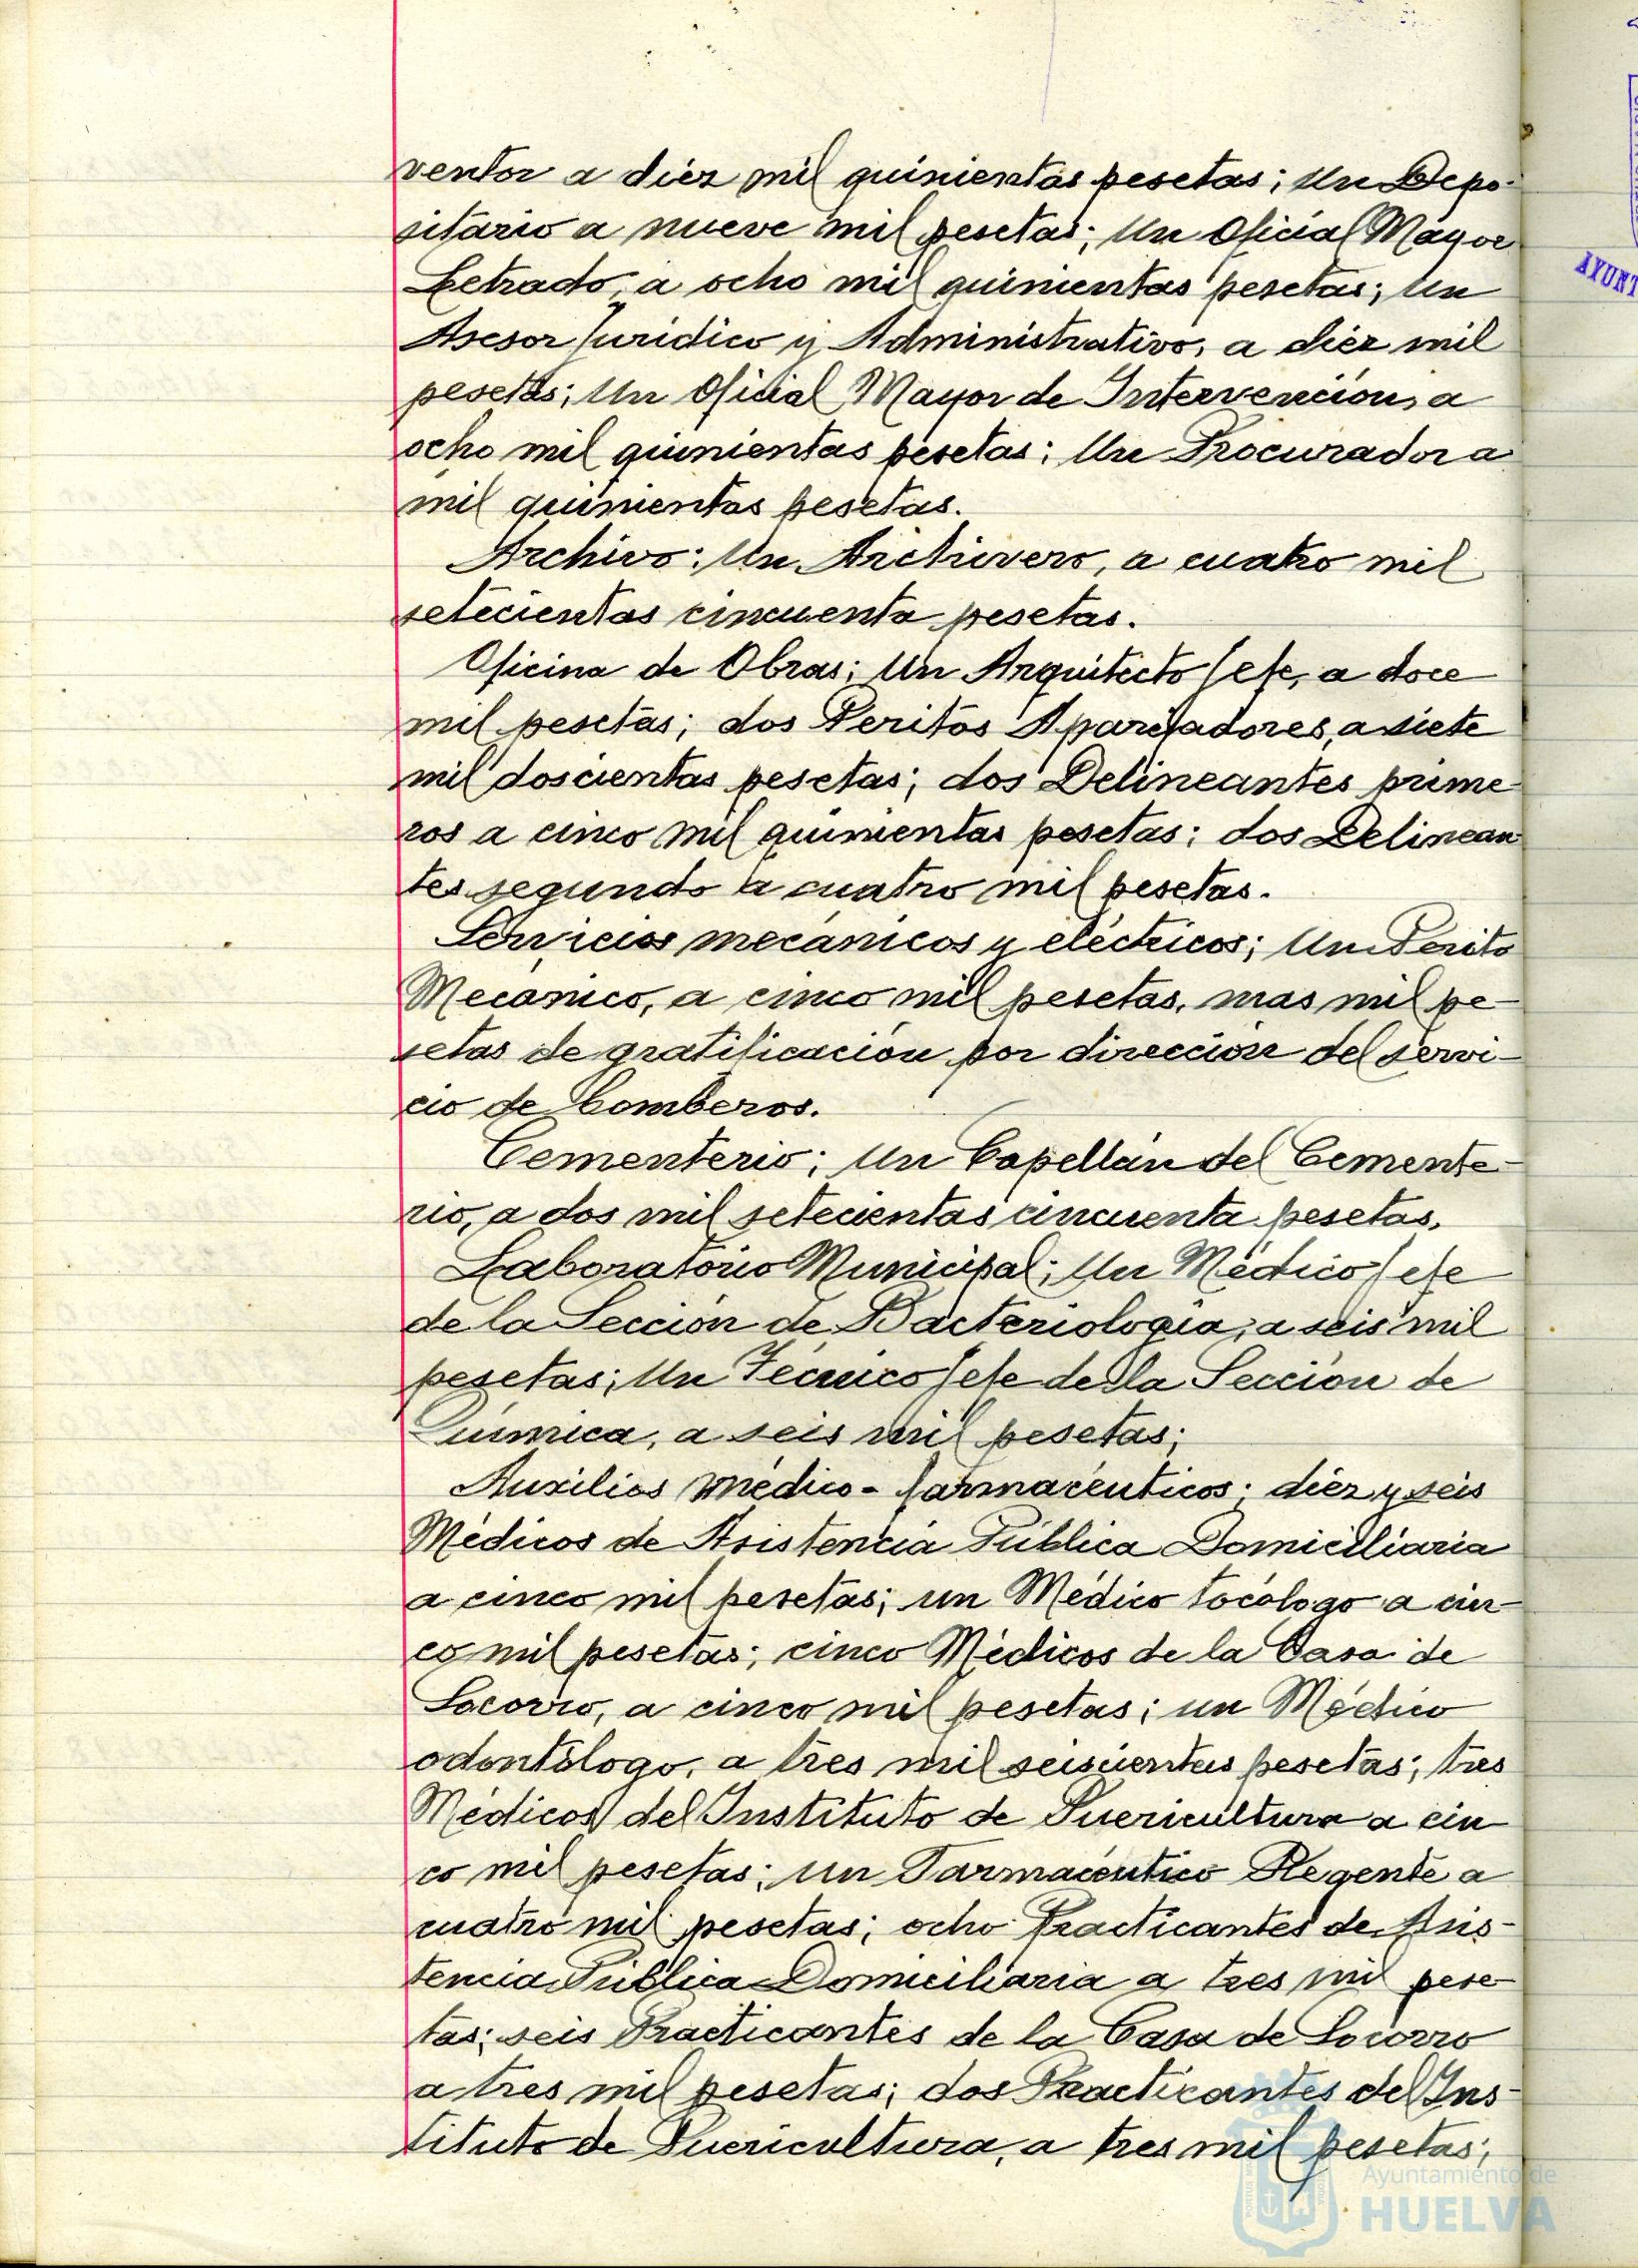 ventor a diéz mil quinientas pesetas; Un Depo-
sitario a nueve mil pesetas; Un Oficial Mayor
Letrado, a ocho mil quinientas pesetas; Un
Asesor Jurídico y Administrativo, a diéz mil
pesetas; Un Oficial Mayor de Intervención, a
ocho mil quinientas pesetas; Un Procurador a
mil quinientas pesetas.
Archivo: Un Archivero, a cuatro mil
setecientas cincuenta pesetas.
Oficina de Obras; Un Arquitecto Jefe, a doce
mil pesetas; dos Peritos Aparejadores, a siete
mil doscientas pesetas; dos Delineantes prime-
ros a cinco mil quinientas pesetas; dos Delinean
tes segundo a cuatro mil pesetas.
Servicios mecánicos y eléctricos; Un Perito
Mecánico, a cinco mil pesetas, mas mil pe-
setas de gratificación por dirección del servi-
cio de bomberos.
Cementerio; Un Capellán del Cemente-
rio, a dos mil setecientas cincuenta pesetas.
Laboratorio Municipal; Un Médico Jefe
de la Sección de Bacteriología, a seis mil
pesetas; Un Técnico Jefe de la Sección de
Química, a seis mil pesetas;
Auxilios médico-farmacéuticos; diéz y seis
Médicos de Asistencia Pública Domiciliaria
a cinco mil pesetas; un Médico tocólogo a cin-
co mil pesetas; cinco Médicos de la Casa de
Socorro, a cinco mil pesetas; un Médico
odontólogo, a tres mil seiscientas pesetas; tres
Médicos del Instituto de Puericultura a cin
co mil pesetas; un Farmacéutico Regente a
cuatro mil pesetas; ocho Practicantes de Asis-
tencia Pública Domiciliaria a tres mil pese-
tas; seis Practicantes de la Casa de Socorro
a tres mil pesetas; dos Practicantes del Ins-
tituto de Puericultura, a tres mil pesetas;
Ayuntamiento de
HUELVA